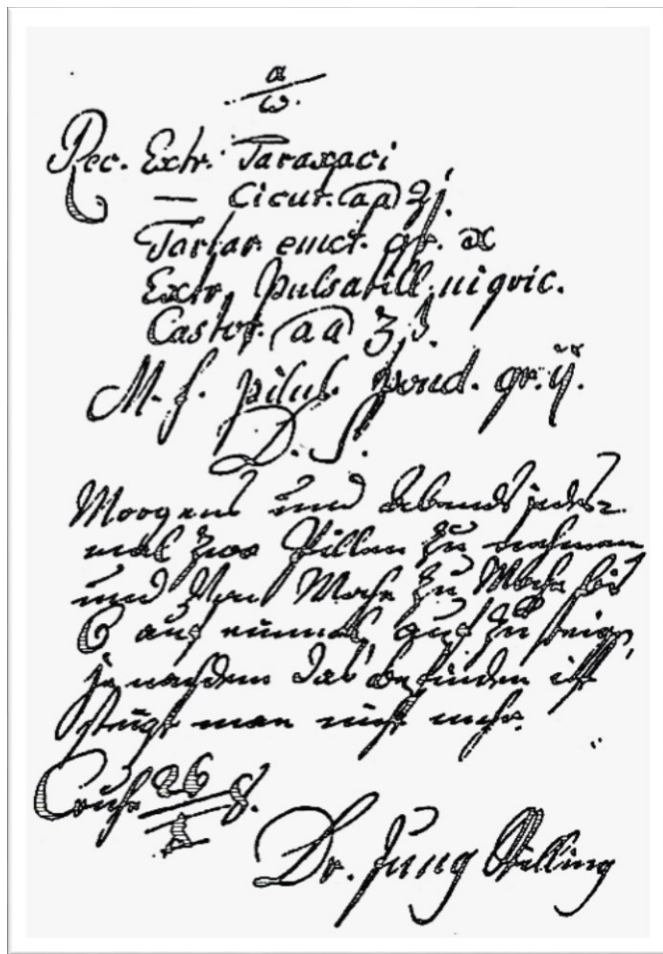 α
ω.
Rec. Extr. Taraxaci
— Cicut. aa ʒj.
Tartar. emet. gr. x
Extr. pulsatill. nigric.
Castor. aa ʒß.
M. f. pilul. pond. gr. ij.
D. S.
Morgens und Abends jedes=
mal zwo Pillen zu nehmen
und von Woche zu Woche bis
6 auf einmal aufzusteigen,
je nachdem das befinden ist
steigt man nicht mehr.
26
8.
Dr. Jung Stilling